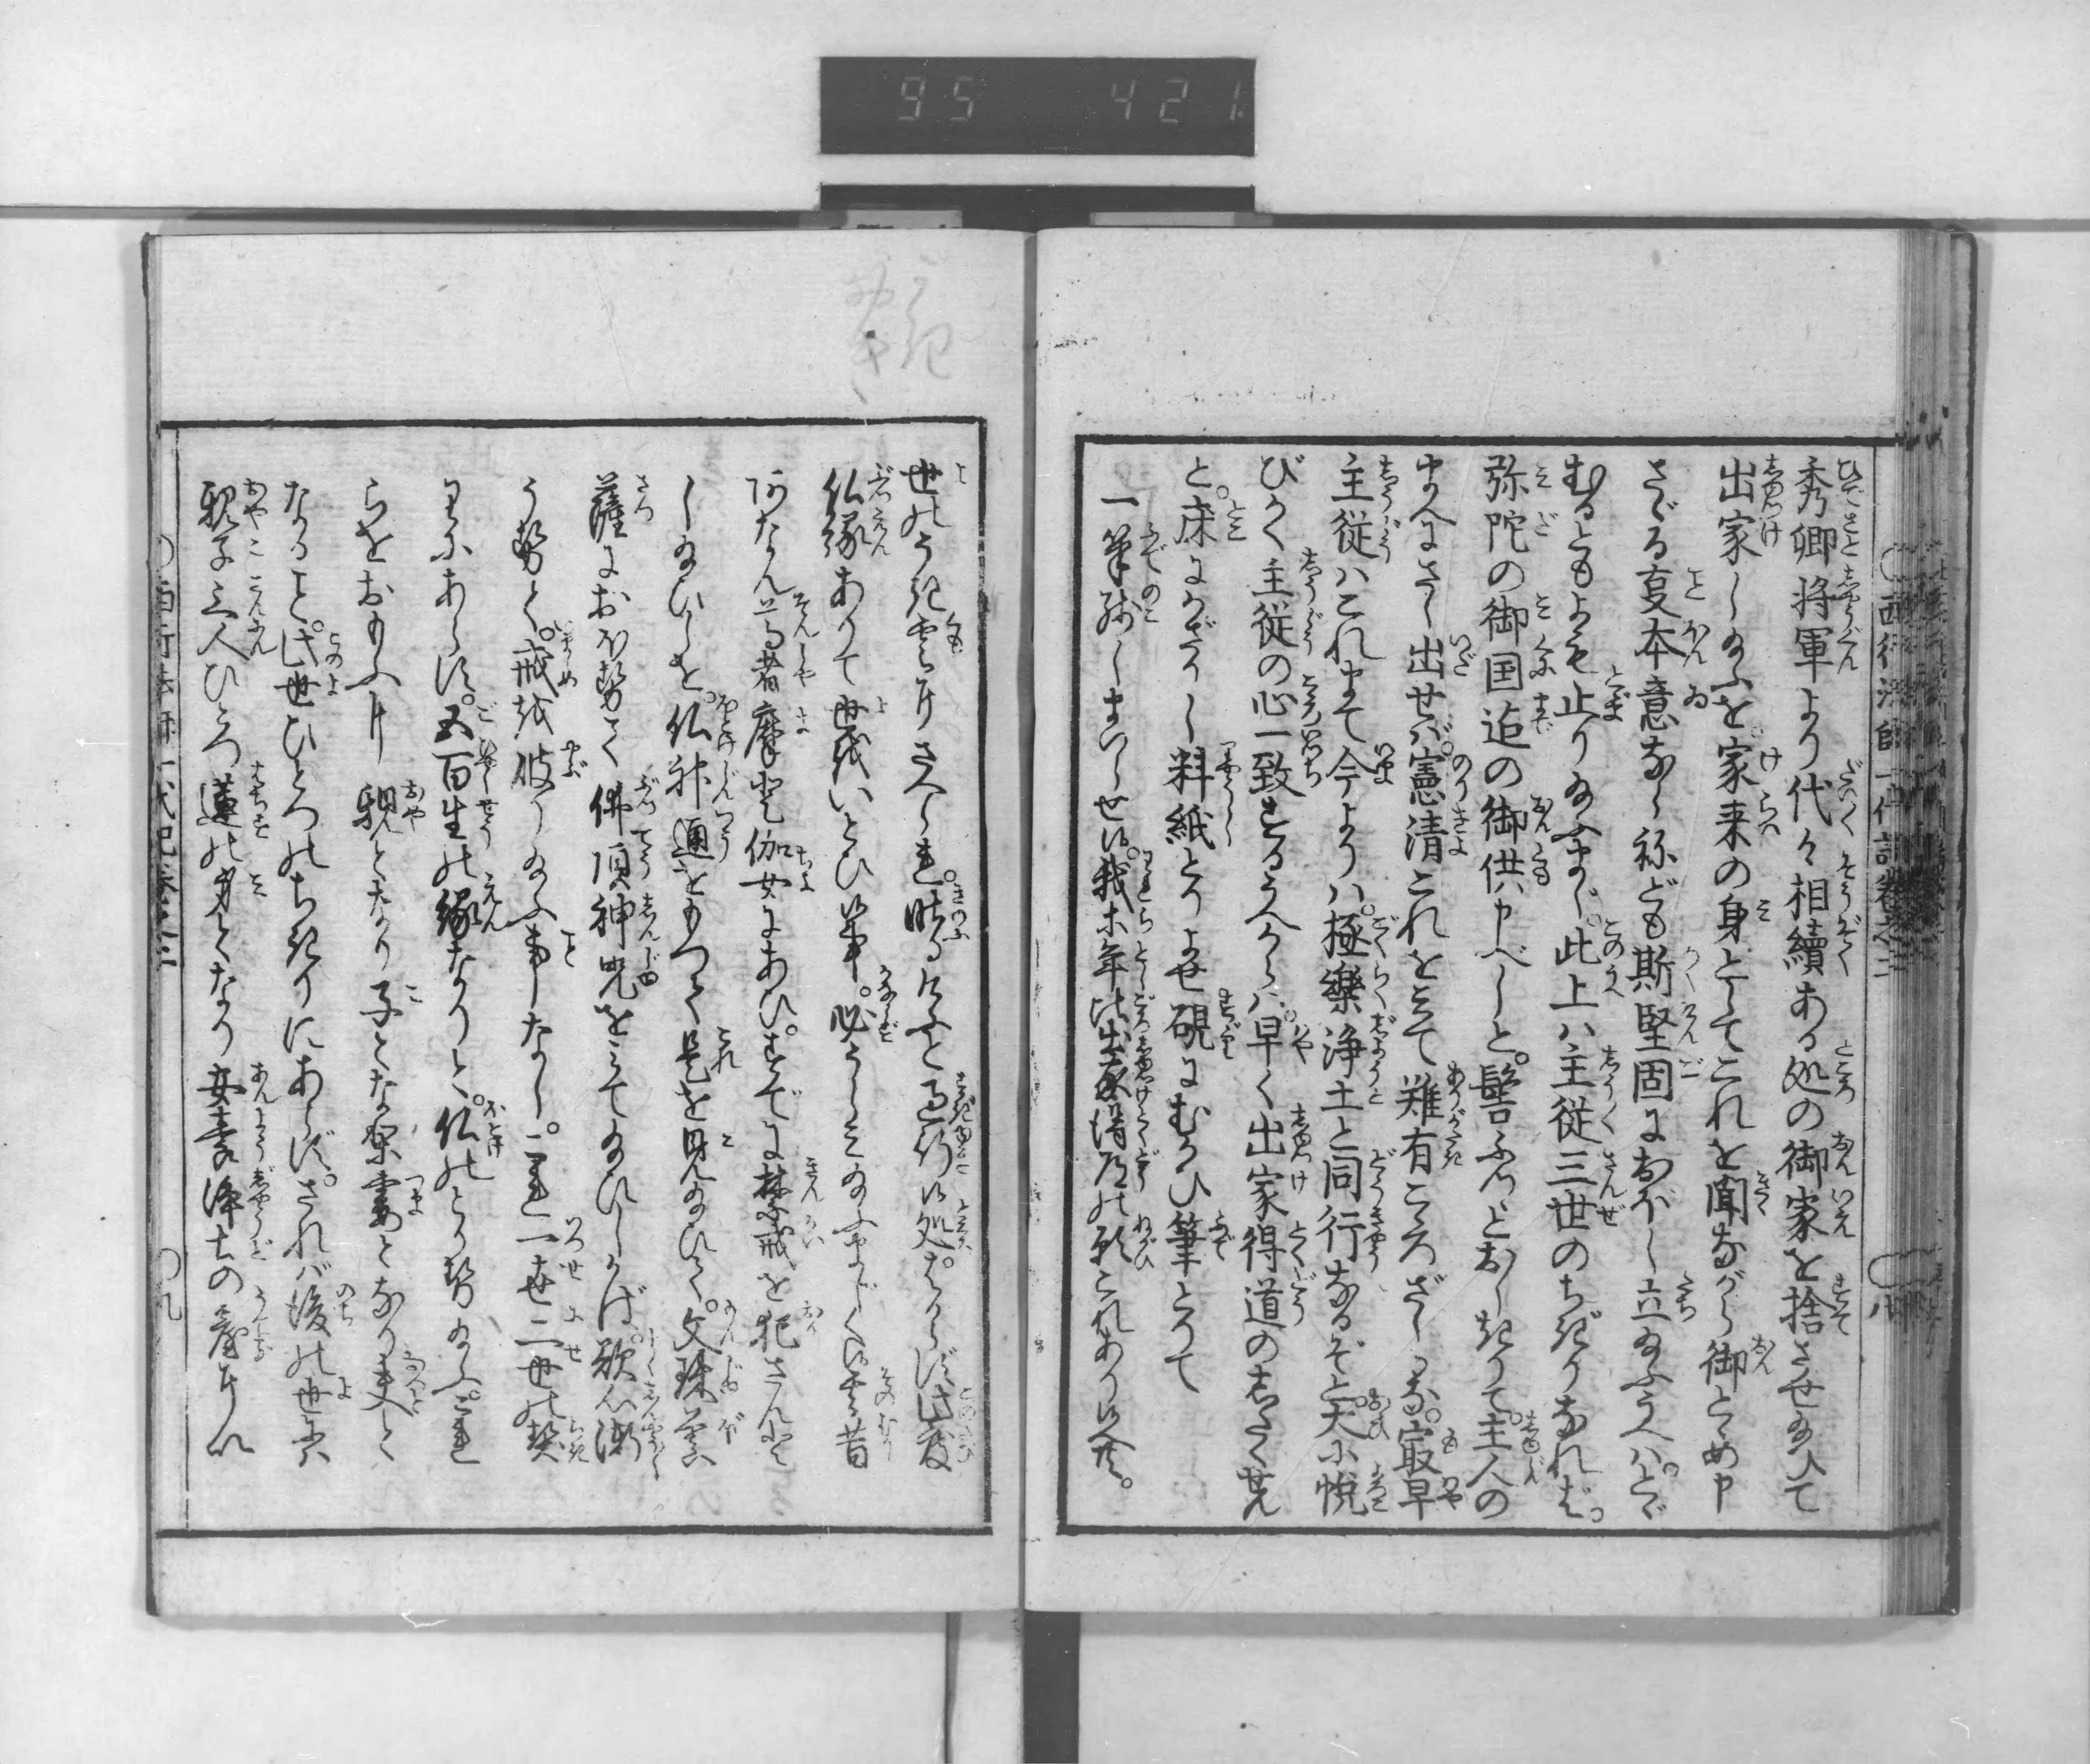 95 421
西行法師一代記巻之二
八
秀郷将軍より代々相續ある処の御家を捨させ給ひて
出家し給ふを家来の身としてこれを聞ながら御とめ申
さゞる叓本意ならねども斯堅固におぼし立給ふうへハとゞ
むるともよも止り給ふまじ此上ハ主従三世のちぎりなれば
弥陀の御国迄の御供申べしと髻ふつとおしきりて主人の
まへにさし出せバ憲清これをみて難有こゝろざしかな最早
主従ハこれまで今よりハ極樂浄土と同行なるぞと大に悦
びかく主従の心一致するうへからハ早く出家得道の志たくせん
と床にかざりし料紙とりよせ硯にむかひ筆とりて
一筆残しまいらせ候我等年比出家得道の願これあり候へ共
世のうき雲にさへられ昨日けふと過行候処はからず此度
仏縁ありて世をいとひ候事必うらみ給ふまじく候其昔
阿なん尊者摩登伽女にあひすでに禁戒を犯さんと
し給ひしを仏神通をもつて是を見給ひて文殊菩
薩におほせて佛頂神咒をみて給ひしかば欲心漸
うせて戒を破り給ふ事なしこれ一世二世の契
にあらず五百生の縁なりと仏のとかせ給ふこれ
らをおもふに親となり子となり妻となり夫と
なること此世ひとつのちぎりにあらずされバ後の世にハ
親子三人ひとつ蓮の身となり安養浄土の
西行法師一代記巻之二
〇九